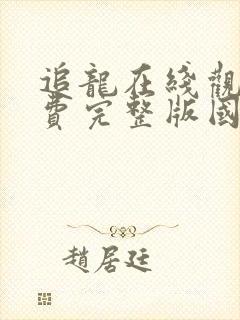 追龍在綫觀
費完整版國
趙居廷